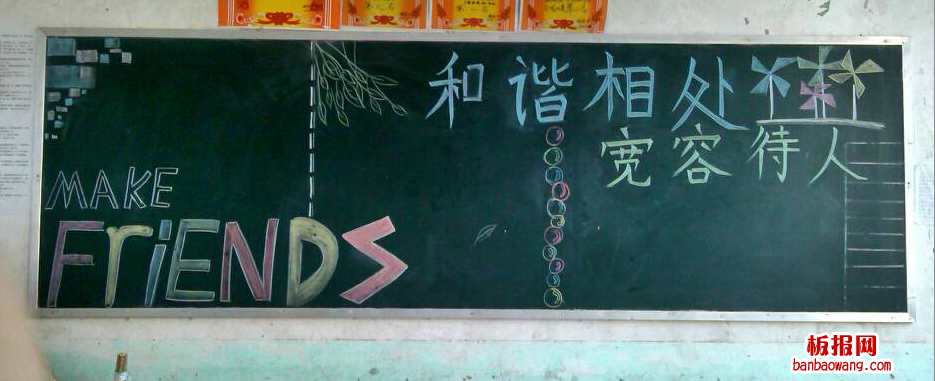 和谐相处
宽容待人
MAKE
FriENDS
板报网
banbaowang.com